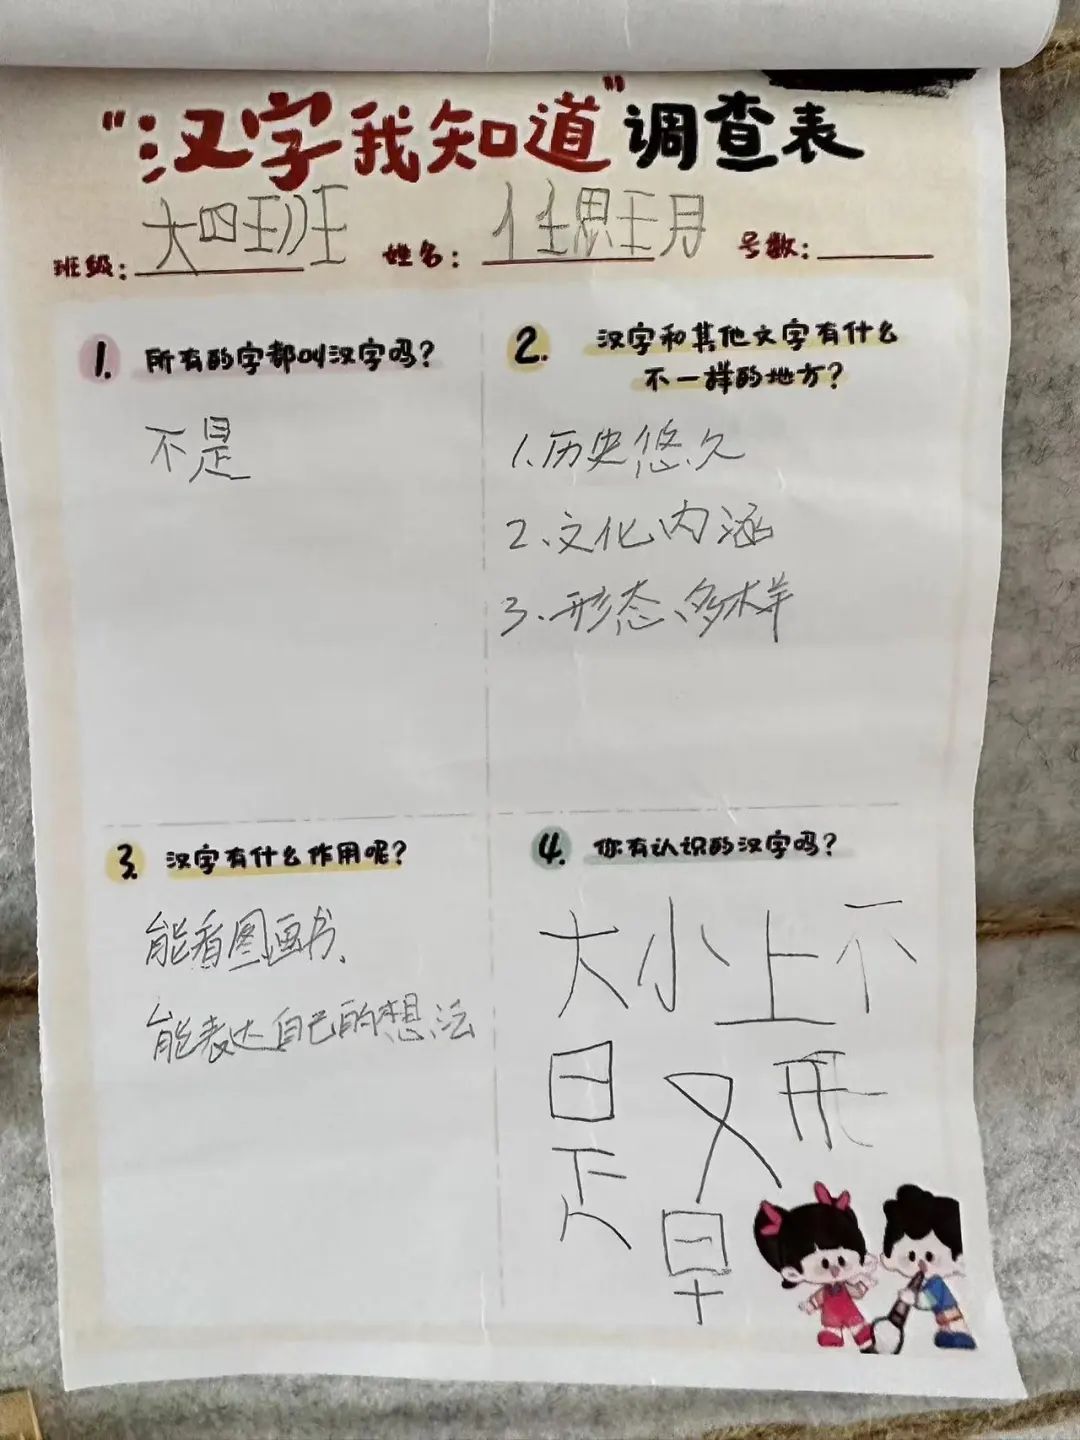 “汉字我知道”调查表
班级：大四班 姓名：任思玥 号数：
1. 所有的字都叫汉字吗？
不是
2. 汉字和其他文字有什么
不一样的地方？
1、历史悠久
2、文化内涵
3、形态多样
3. 汉字有什么作用呢？
能看图画书、
能表达自己的想法
4. 你有认识的汉字吗？
大小上不
是又
早